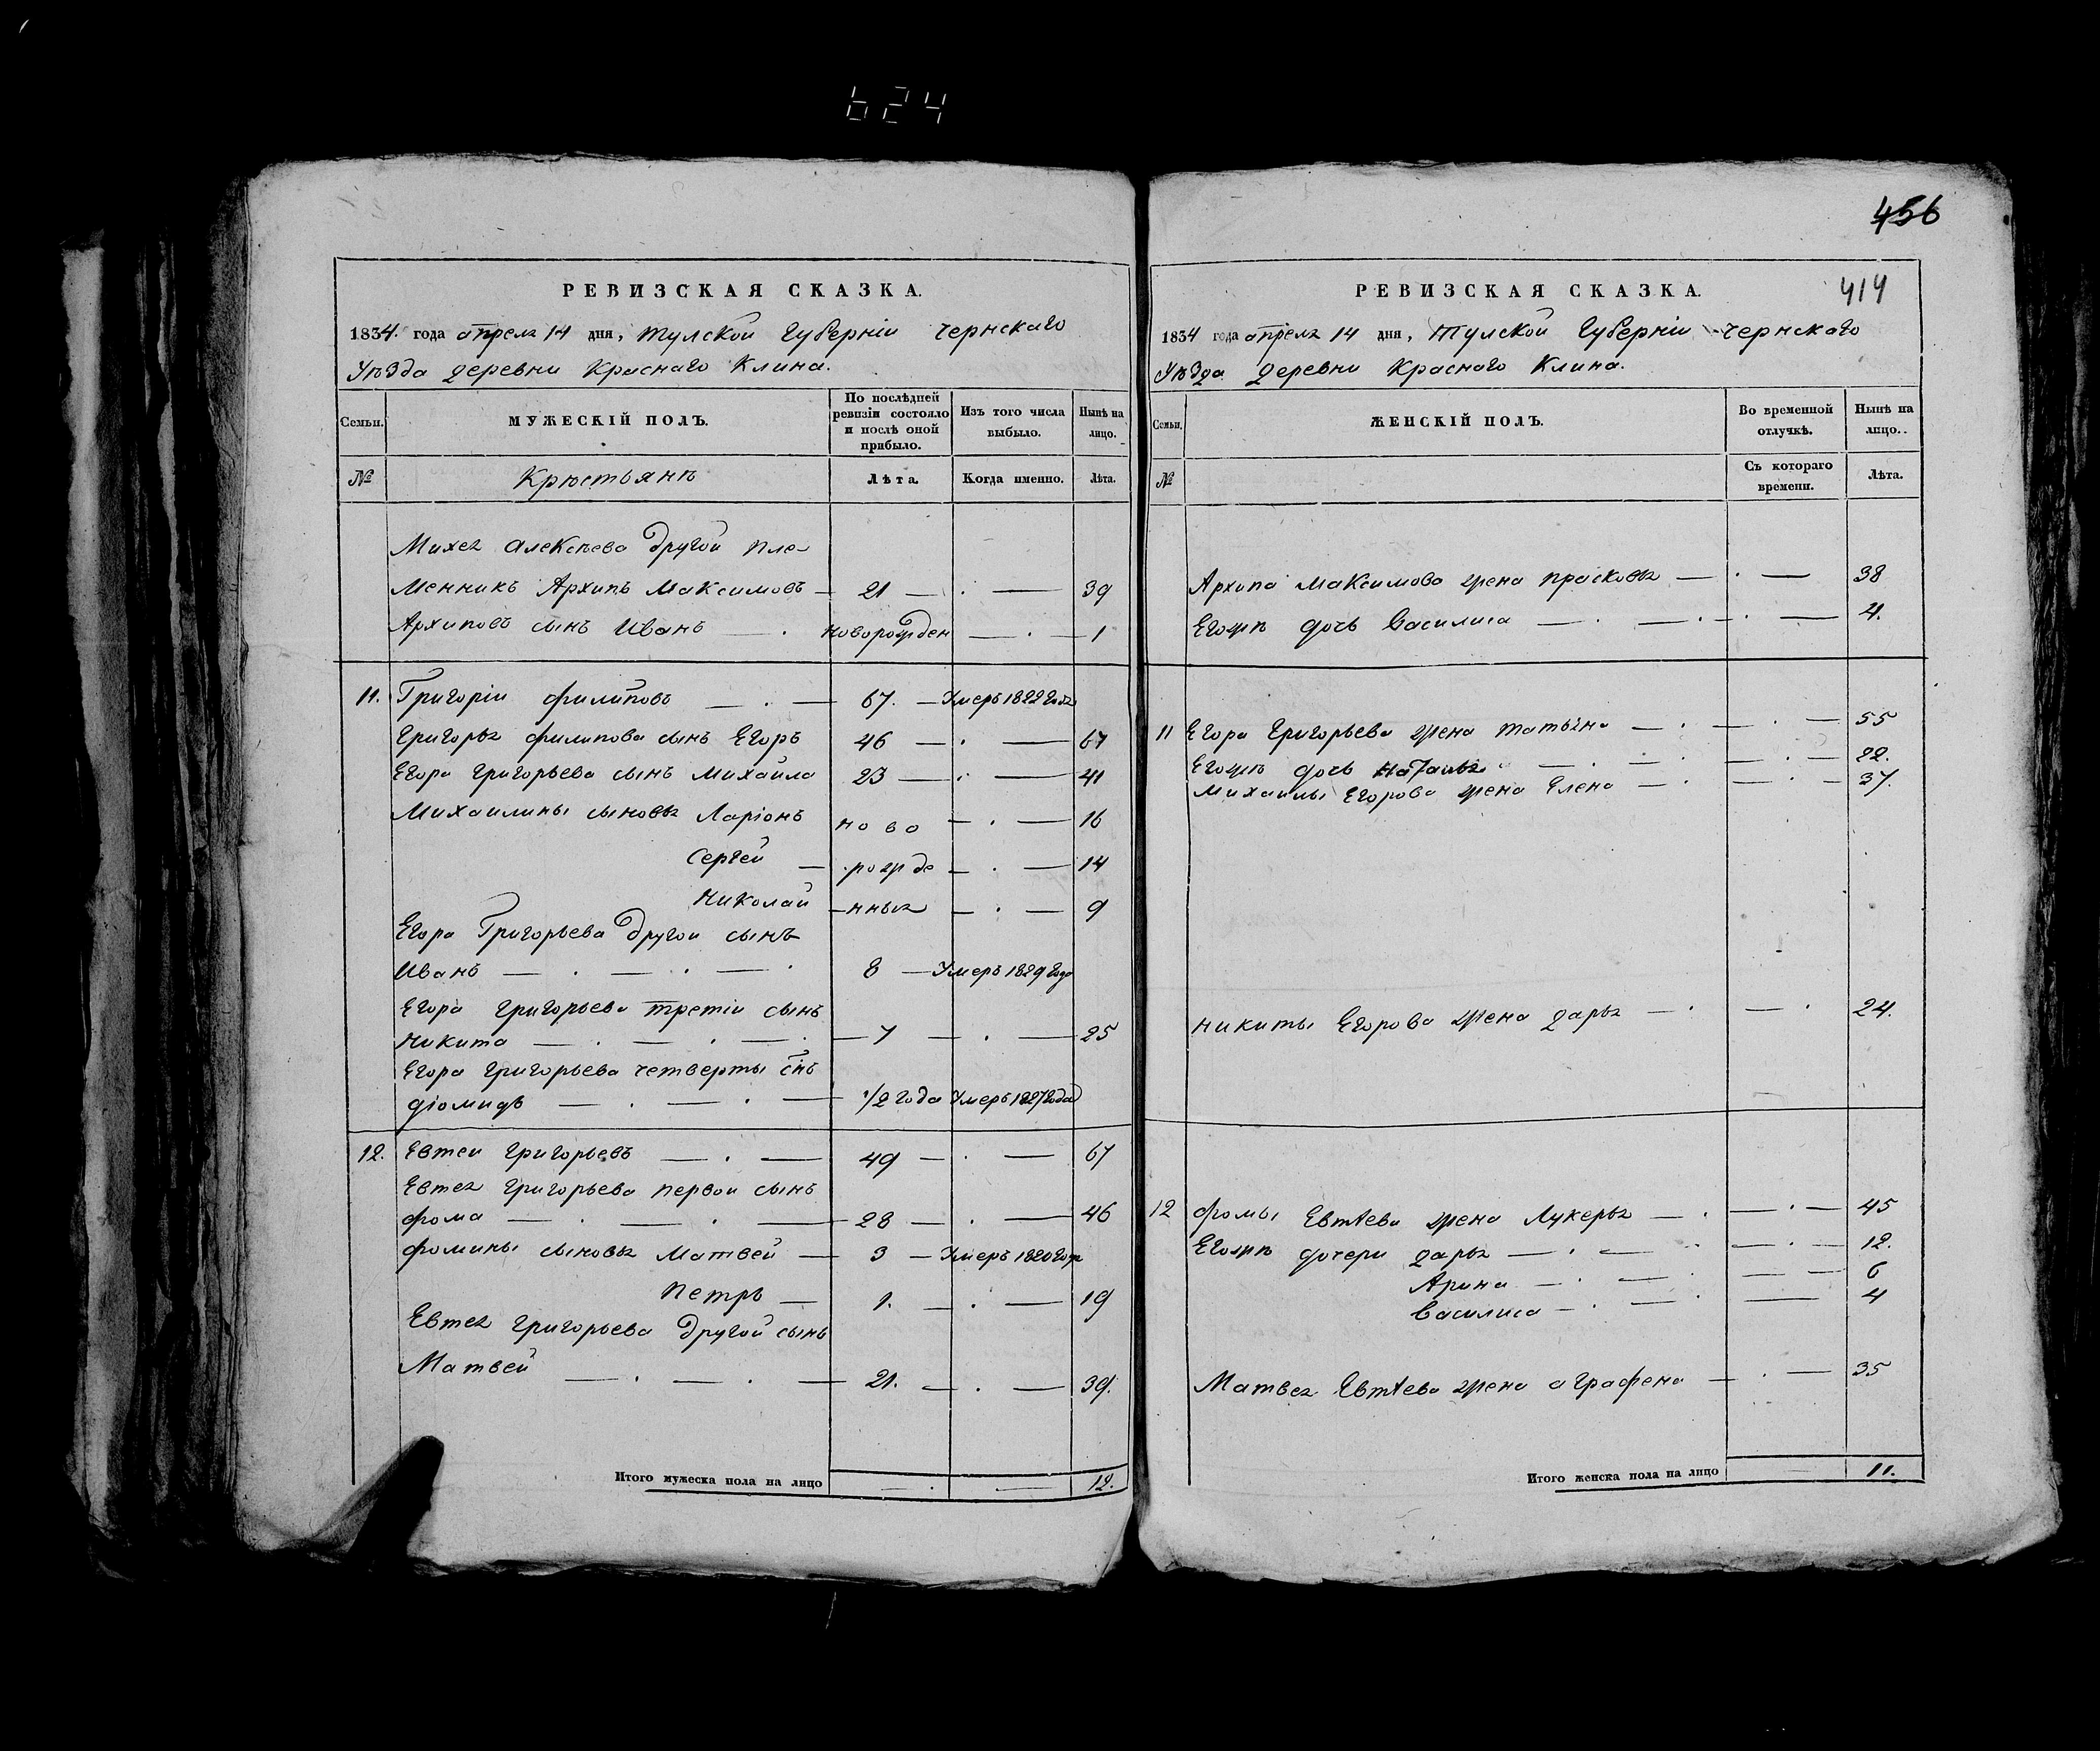 624
РЕВИЗСКАЯ СКАЗКА.
1834. года апреля 14 дня, тулской губернiи чернскаго
Уѣзда деревни Краснаго Клина.
Семьи.
МУЖЕСКIЙ ПОЛЪ.
По послѣдней ревизiи состояло и послѣ оной прибыло.
Изъ того числа выбыло.
Нынѣ на лицо.
№
Крѣстьянѣ
Лѣта.
Когда именно.
Лѣта.
Михея Алексѣева другой пле-
менникъ Архипъ Максимовъ — 21 — . — 39
Архиповъ сынъ Иванъ — . новорожден — . — 1
11. Григорiи филиповъ — . — 67. — Умеръ 1822 года
Григорья филипова сынъ Егоръ 46 — . — 67
Егора Григорьева сынъ Михайла 23 — . — 41
Михаилины сыновья Ларiонъ ново — . — 16
Сергей — рожде — . — 14
Николай — нныя — . — 9
Егора Григорьева другои сынъ
Иванъ — . — . — . 8 — Умеръ 1829 года
Егора Григорьева третiи сынъ
Никита — . — . — . — 7 — . — 25
Егора Григорьева четверты снъ
дiомидъ — . — . — 1/2 года Умеръ 1827 года
12. Евтеи Григорьевъ — . — 49 — . — 67
Евтея Григорьева первои сынъ
фома — . — . — 28 — . — 46
фомины сыновья Матвей — 3 — Умеръ 1820 год
Петръ — 1. — . — 19
Евтея Григорьева другой сынъ
Матвей — . — . — 21. — . — 39.
Итого мужеска пола на лицо — . — 12.
456
414
РЕВИЗСКАЯ СКАЗКА.
1834 года апреля 14 дня, тулской Губернiи чернскаго
Уѣзда деревни Краснаго Клина.
Семьи.
ЖЕНСКIЙ ПОЛЪ.
Во временной отлучкѣ.
Нынѣ на лицо.
№
Съ котораго времени.
Лѣта.
Архипа Максимова жена прасковья — . — 38
Егожъ дочь Василиса — . — . — . — 4.
11 Егора Григорьева жена татьяна — . — . — 55
Егожъ дочь Наталья — . — . — . — 22.
Михаилы Егорова жена Елена — . — . — 37.
никиты Егорова жена дарья — . — . 24.
12 фомы Евтѣева жена Лукерья — . — . — 45
Егожъ дочери дарья — . — . — . — 12.
Арина — . — . — — 6
Василиса — . — . — 4
Матвея Евтѣева жена аграфена — . — 35
Итого женска пола на лицо — 11.